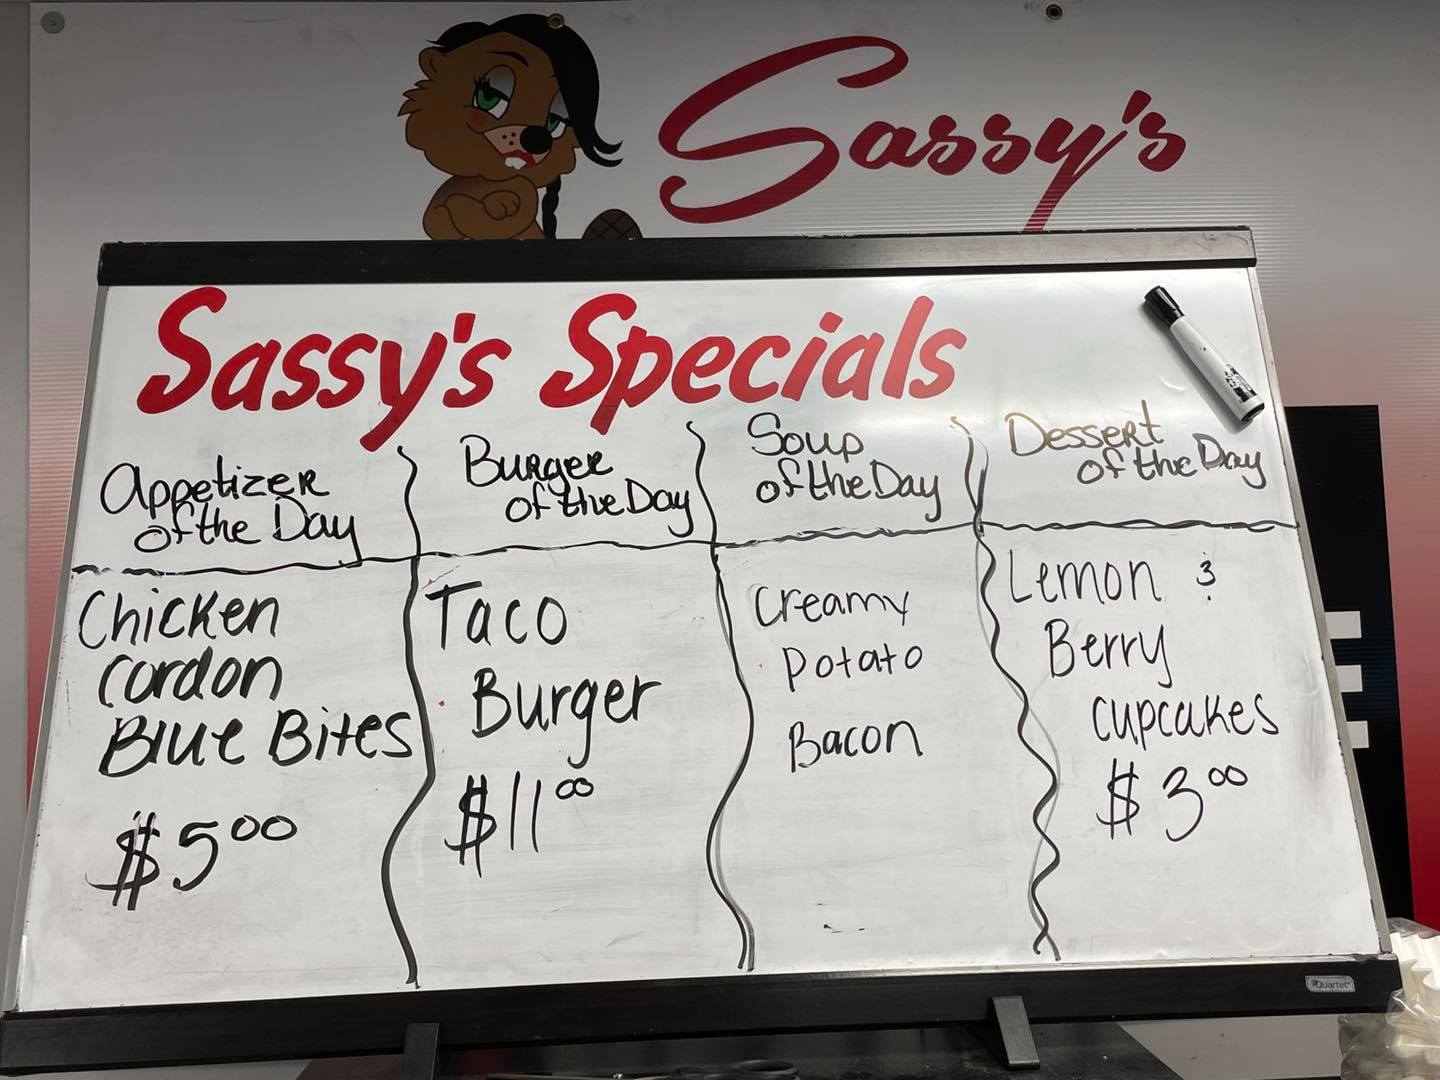 Sassy's
Sassy's Specials
Appetizer
of the Day
Chicken
Cordon
Blue Bites
$5.00
Burger
of the Day
Taco
Burger
$11.00
Soup
of the Day
Creamy
Potato
Bacon
Dessert
of the Day
Lemon &
Berry
cupcakes
$3.00
Quartet